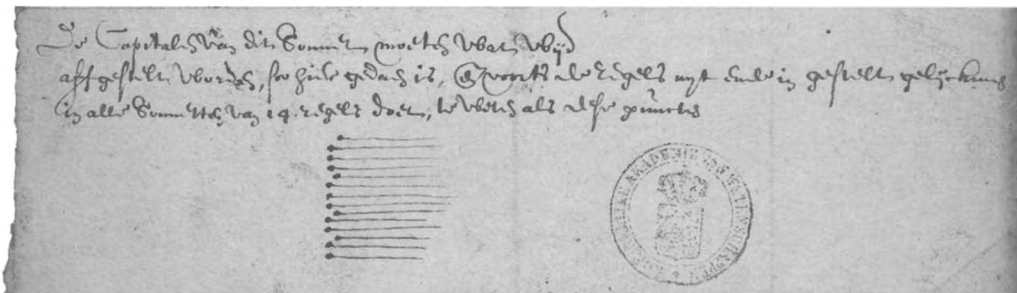 De Capitalen van dit Sonnet moeten wat wijd
affgestelt worden, soo hier gedaen is, Ende voorts de regels uyt ende in gestelt gelyck men
in alle Sonnetten van 14 regels doet, te weten als dese puncten
AKADEMIE VAN WETENSCHAPPEN